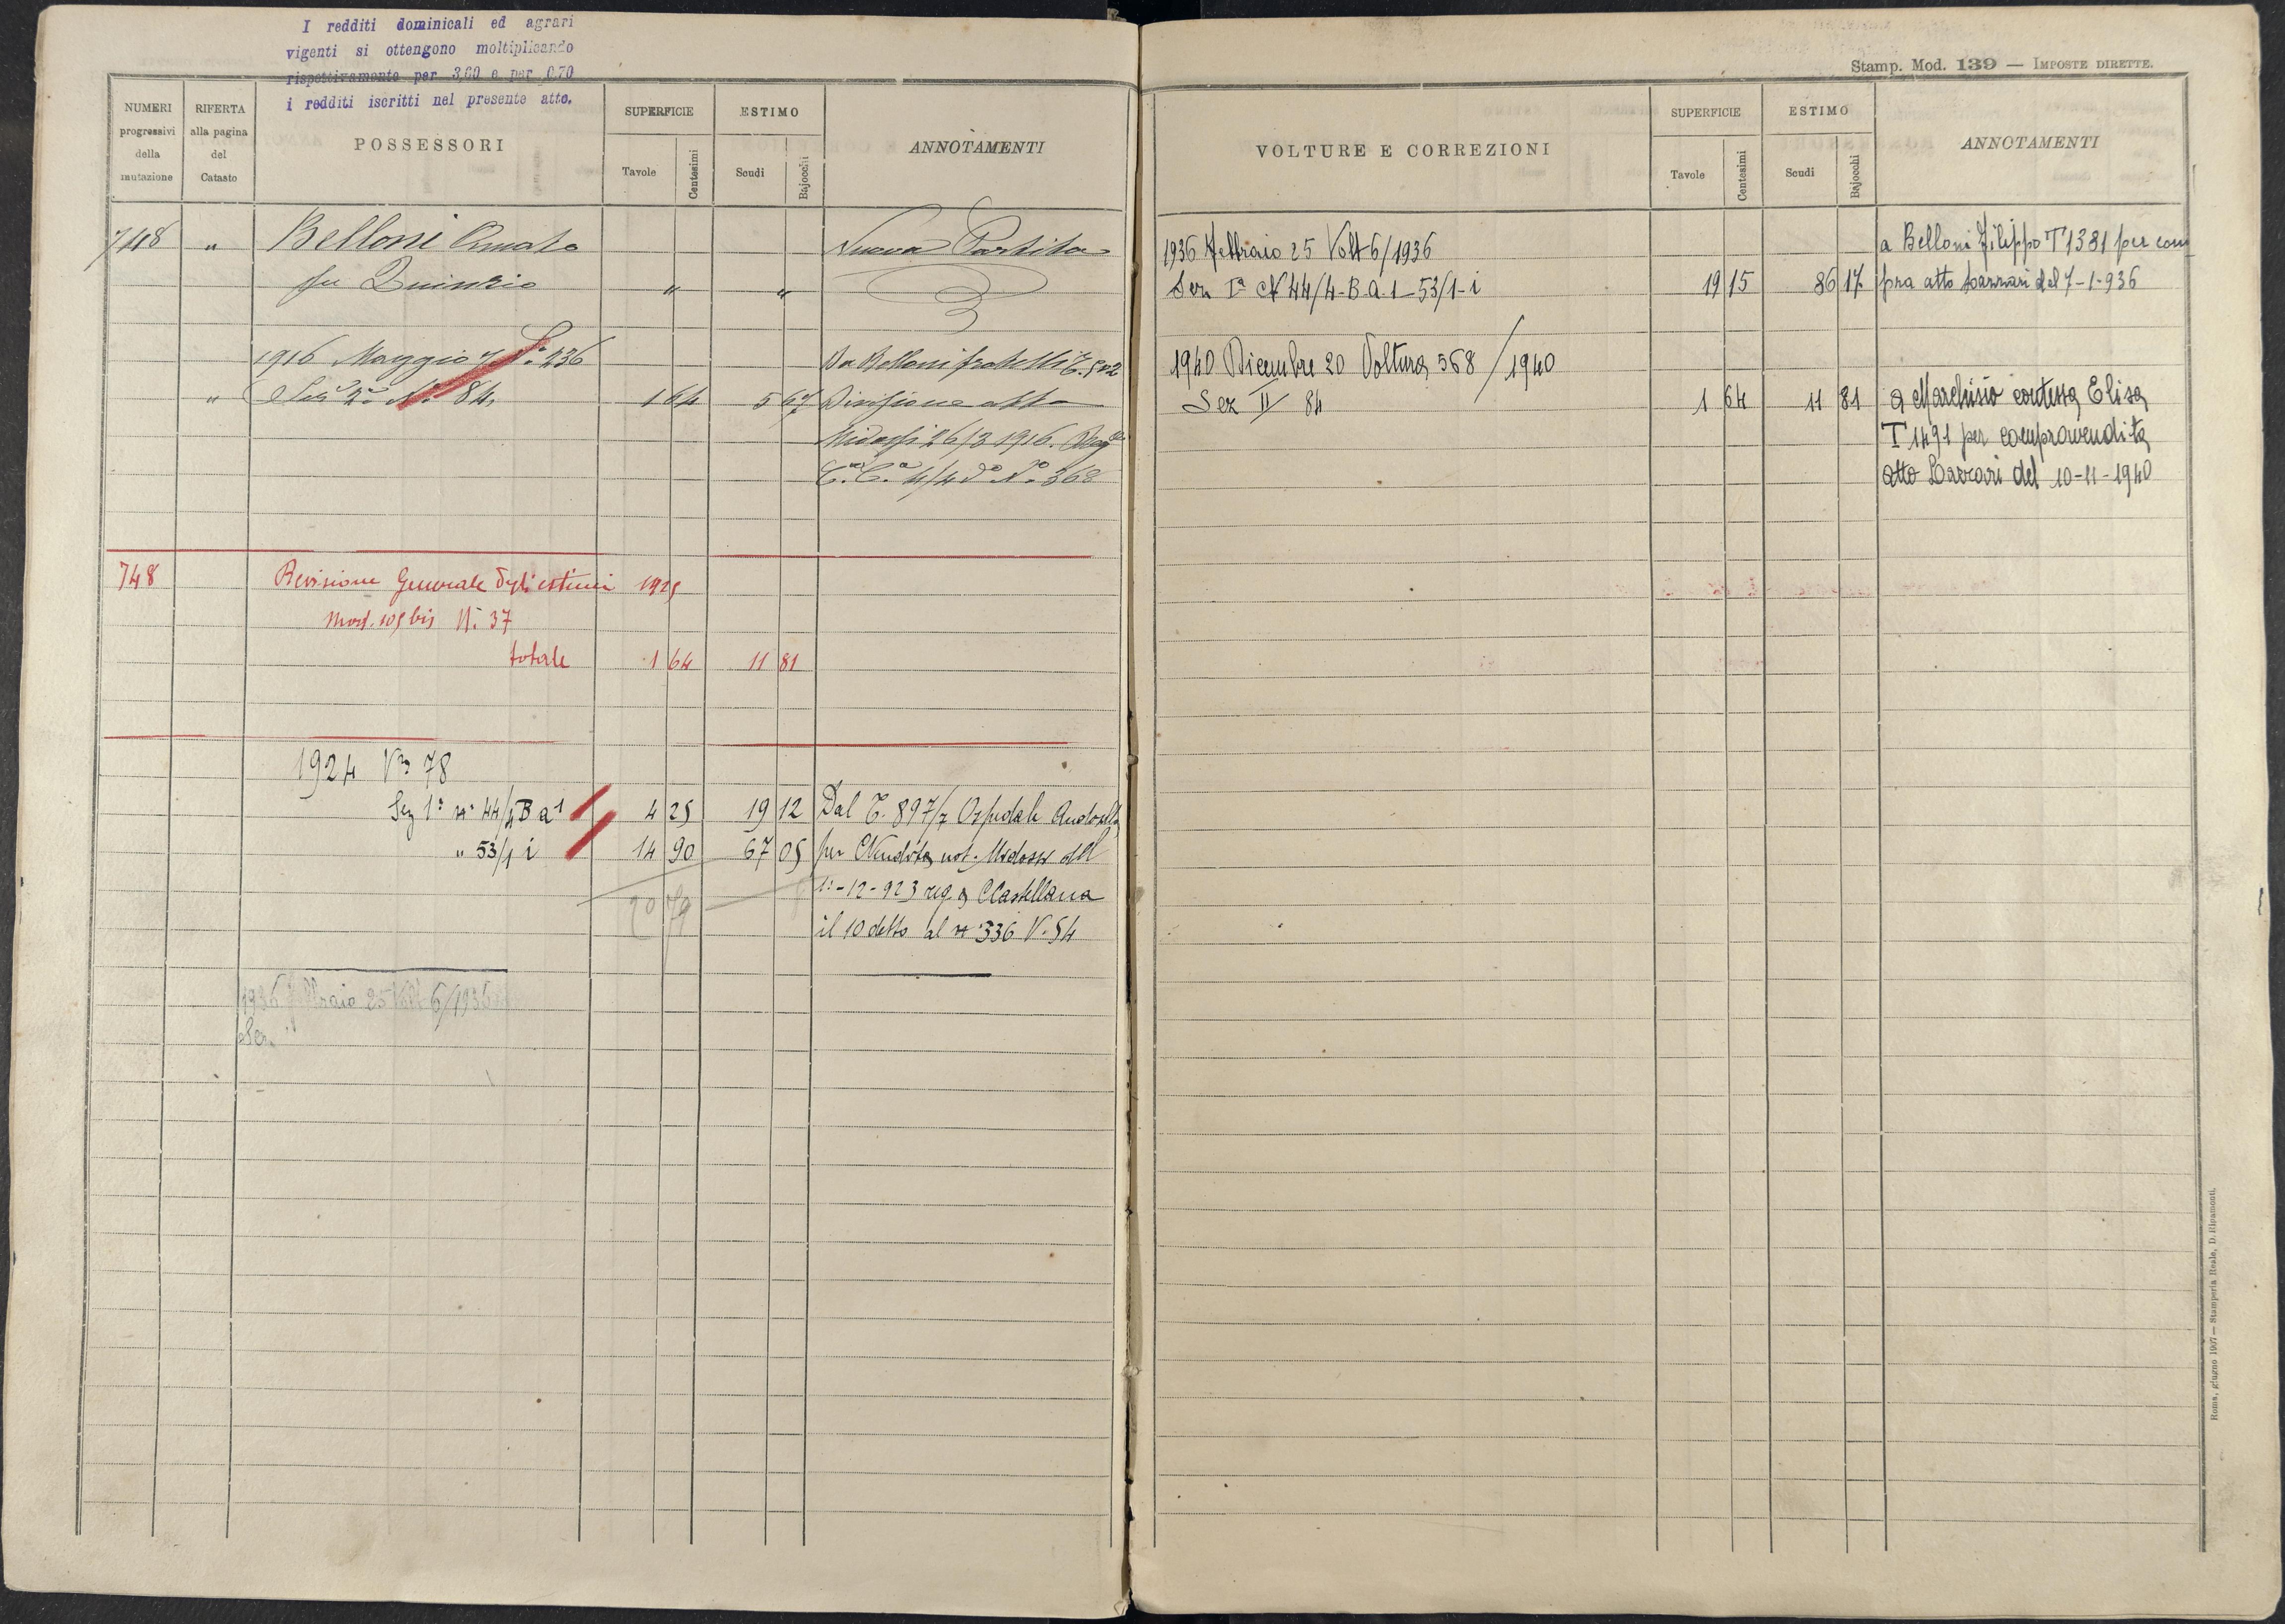 I redditi dominicali ed agrari
vigenti si ottengono moltiplicando
rispettivamente per 3,60 e per 0,70
i redditi iscritti nel presente atto.
NUMERI progressivi della mutazione
RIFERTA alla pagina del Catasto
POSSESSORI
SUPERFICIE
Tavole
Centesimi
ESTIMO
Scudi
Bajocchi
ANNOTAMENTI
748 " Belloni Amato Nuova Partita
fu Quinzio " "
1916 Maggio 7 N.° 236 Da Belloni fratelli T. 502
" Sez 2ª N.° 84 1 64 5 67 Divisione atto
Midossi 26/3 1916. Reg
C.ª C.ª 4/4 d° N.° 368
748 Revisione Generale degli estimi 1925
Mod. 109 bis N. 37
totale 1 64 11 81
1924 Vra 78
Sez 1ª n° 44/4 B a 1 4 25 19 12 Dal T. 897/2 Ospedale Andosilla
" 53/1 i 14 90 67 05 per Vendita not. Midossi del
20 79 1°-12-923 reg a CCastellana
il 10 detto al n° 336 V. 54
1936 febbraio 25 Volt 6/1936
Sez.
Stamp. Mod. 139 — IMPOSTE DIRETTE.
VOLTURE E CORREZIONI
SUPERFICIE
Tavole
Centesimi
ESTIMO
Scudi
Bajocchi
ANNOTAMENTI
1936 Febbraio 25 Volt 6/1936 a Belloni Filippo T 1381 per com
Sez Iª N 44/4-B-a-1-53/1-i 19 15 86 17 pra atto Lazzari del 7-1-936
1940 Dicembre 20 Voltura 568/1940
Sez II 84 1 64 11 81 a Marchisio contessa Elisa
T 1491 per compravendita
atto Lazzari del 10-11-1940
Roma, giugno 1907 — Stamperia Reale, D. Ripamonti.